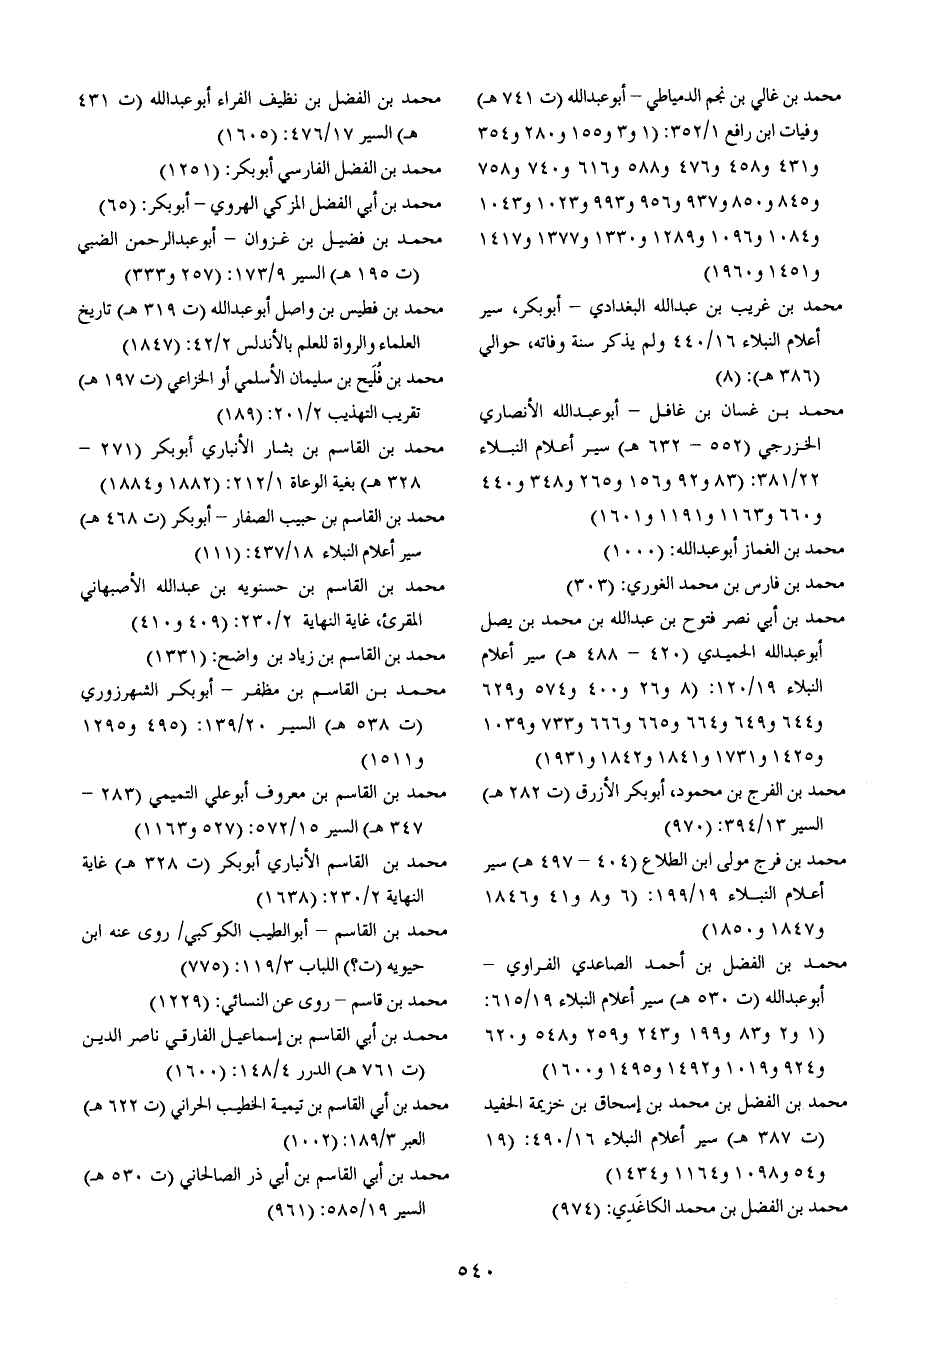 محمد بن غالي بن نجم الدمياطي – أبوعبدالله (ت ٧٤١ هـ)
وفيات ابن رافع ٣٥٢/١: (١ و٣ و١٥٥ و٢٨٠ و٣٥٤
و٤٣١ و٤٥٨ و٤٧٦ و٥٨٨ و٦١٦ و٧٤٠ و٧٥٨
و٨٤٥ و٨٥٠ و٩٣٧ و٩٥٦ و٩٩٣ و١٠٢٣ و١٠٤٣
و١٠٨٤ و١٠٩٦ و١٢٨٩ و١٣٣٠ و١٣٧٧ و١٤١٧
و١٤٥١ و١٩٦٠)
محمد بن غريب بن عبدالله البغدادي – أبوبكر، سير
أعلام النبلاء ٤٤٠/١٦ ولم يذكر سنة وفاته، حوالي
(٣٨٦ هـ): (٨)
محمد بن غسان بن غافل – أبوعبدالله الأنصاري
الخزرجي (٥٥٢ – ٦٣٢ هـ) سير أعلام النبلاء
٣٨١/٢٢: (٨٣ و٩٢ و١٥٦ و٢٦٥ و٣٤٨ و٤٤٠
و٦٦٠ و١١٦٣ و١١٩١ و١٦٠١)
محمد بن الغماز أبوعبدالله: (١٠٠٠)
محمد بن فارس بن محمد الغوري: (٣٠٣)
محمد بن أبي نصر فتوح بن عبدالله بن محمد بن يصل
أبوعبدالله الحميدي (٤٢٠ – ٤٨٨ هـ) سير أعلام
النبلاء ١٢٠/١٩: (٨ و٢٦ و٤٠٠ و٥٧٤ و٦٢٩
و٦٤٤ و٦٤٩ و٦٦٤ و٦٦٥ و٦٦٦ و٧٣٣ و١٠٣٩
و١٤٢٥ و١٧٣١ و١٨٤١ و١٨٤٢ و١٩٣١)
محمد بن الفرج بن محمود، أبوبكر الأزرق (ت ٢٨٢ هـ)
السير ٣٩٤/١٣: (٩٧٠)
محمد بن فرج مولى ابن الطلاع (٤٠٤ – ٤٩٧ هـ) سير
أعلام النبلاء ١٩٩/١٩: (٦ و٨ و٤١ و١٨٤٦
و١٨٤٧ و١٨٥٠)
محمد بن الفضل بن أحمد الصاعدي الفراوي –
أبوعبدالله (ت ٥٣٠ هـ) سير أعلام النبلاء ٦١٥/١٩:
(١ و٢ و٨٣ و١٩٩ و٢٤٣ و٢٥٩ و٥٤٨ و٦٢٠
و٩٢٤ و١٠١٩ و١٤٩٢ و١٤٩٥ و١٦٠٠)
محمد بن الفضل بن محمد بن إسحاق بن خزيمة الحفيد
(ت ٣٨٧ هـ) سير أعلام النبلاء ٤٩٠/١٦: (١٩
و٥٤ و١٠٩٨ و١١٦٤ و١٤٣٤)
محمد بن الفضل بن محمد الكاغَدِي: (٩٧٤)
محمد بن الفضل بن نظيف الفراء أبوعبدالله (ت ٤٣١
هـ) السير ٤٧٦/١٧: (١٦٠٥)
محمد بن الفضل الفارسي أبوبكر: (١٢٥١)
محمد بن أبي الفضل المزكي الهروي – أبوبكر: (٦٥)
محمد بن فضيل بن غزوان – أبوعبدالرحمن الضبي
(ت ١٩٥ هـ) السير ١٧٣/٩: (٢٥٧ و٣٣٣)
محمد بن فطيس بن واصل أبوعبدالله (ت ٣١٩ هـ) تاريخ
العلماء والرواة للعلم بالأندلس ٤٢/٢: (١٨٤٧)
محمد بن فُلَيح بن سليمان الأسلمي أو الخزاعي (ت ١٩٧ هـ)
تقريب التهذيب ٢٠١/٢: (١٨٩)
محمد بن القاسم بن بشار الأنباري أبوبكر (٢٧١ –
٣٢٨ هـ) بغية الوعاة ٢١٢/١: (١٨٨٢ و١٨٨٤)
محمد بن القاسم بن حبيب الصفار – أبوبكر (ت ٤٦٨ هـ)
سير أعلام النبلاء ٤٣٧/١٨: (١١١)
محمد بن القاسم بن حسنويه بن عبدالله الأصبهاني
المقرئ، غاية النهاية ٢٣٠/٢: (٤٠٩ و٤١٠)
محمد بن القاسم بن زياد بن واضح: (١٣٣١)
محمد بن القاسم بن مظفر – أبوبكر الشهرزوري
(ت ٥٣٨ هـ) السير ١٣٩/٢٠: (٤٩٥ و١٢٩٥
و١٥١١)
محمد بن القاسم بن معروف أبوعلي التميمي (٢٨٣ –
٣٤٧ هـ) السير ٥٧٢/١٥: (٥٢٧ و١١٦٣)
محمد بن القاسم الأنباري أبوبكر (ت ٣٢٨ هـ) غاية
النهاية ٢٣٠/٢: (١٦٣٨)
محمد بن القاسم – أبوالطيب الكوكبي/ روى عنه ابن
حيويه (ت؟) اللباب ١١٩/٣: (٧٧٥)
محمد بن قاسم – روى عن النسائي: (١٢٢٩)
محمد بن أبي القاسم بن إسماعيل الفارقي ناصر الدين
(ت ٧٦١ هـ) الدرر ١٤٨/٤: (١٦٠٠)
محمد بن أبي القاسم بن تيمية الخطيب الحراني (ت ٦٢٢ هـ)
العبر ١٨٩/٣: (١٠٠٢)
محمد بن أبي القاسم بن أبي ذر الصالحاني (ت ٥٣٠ هـ)
السير ٥٨٥/١٩: (٩٦١)
٥٤٠